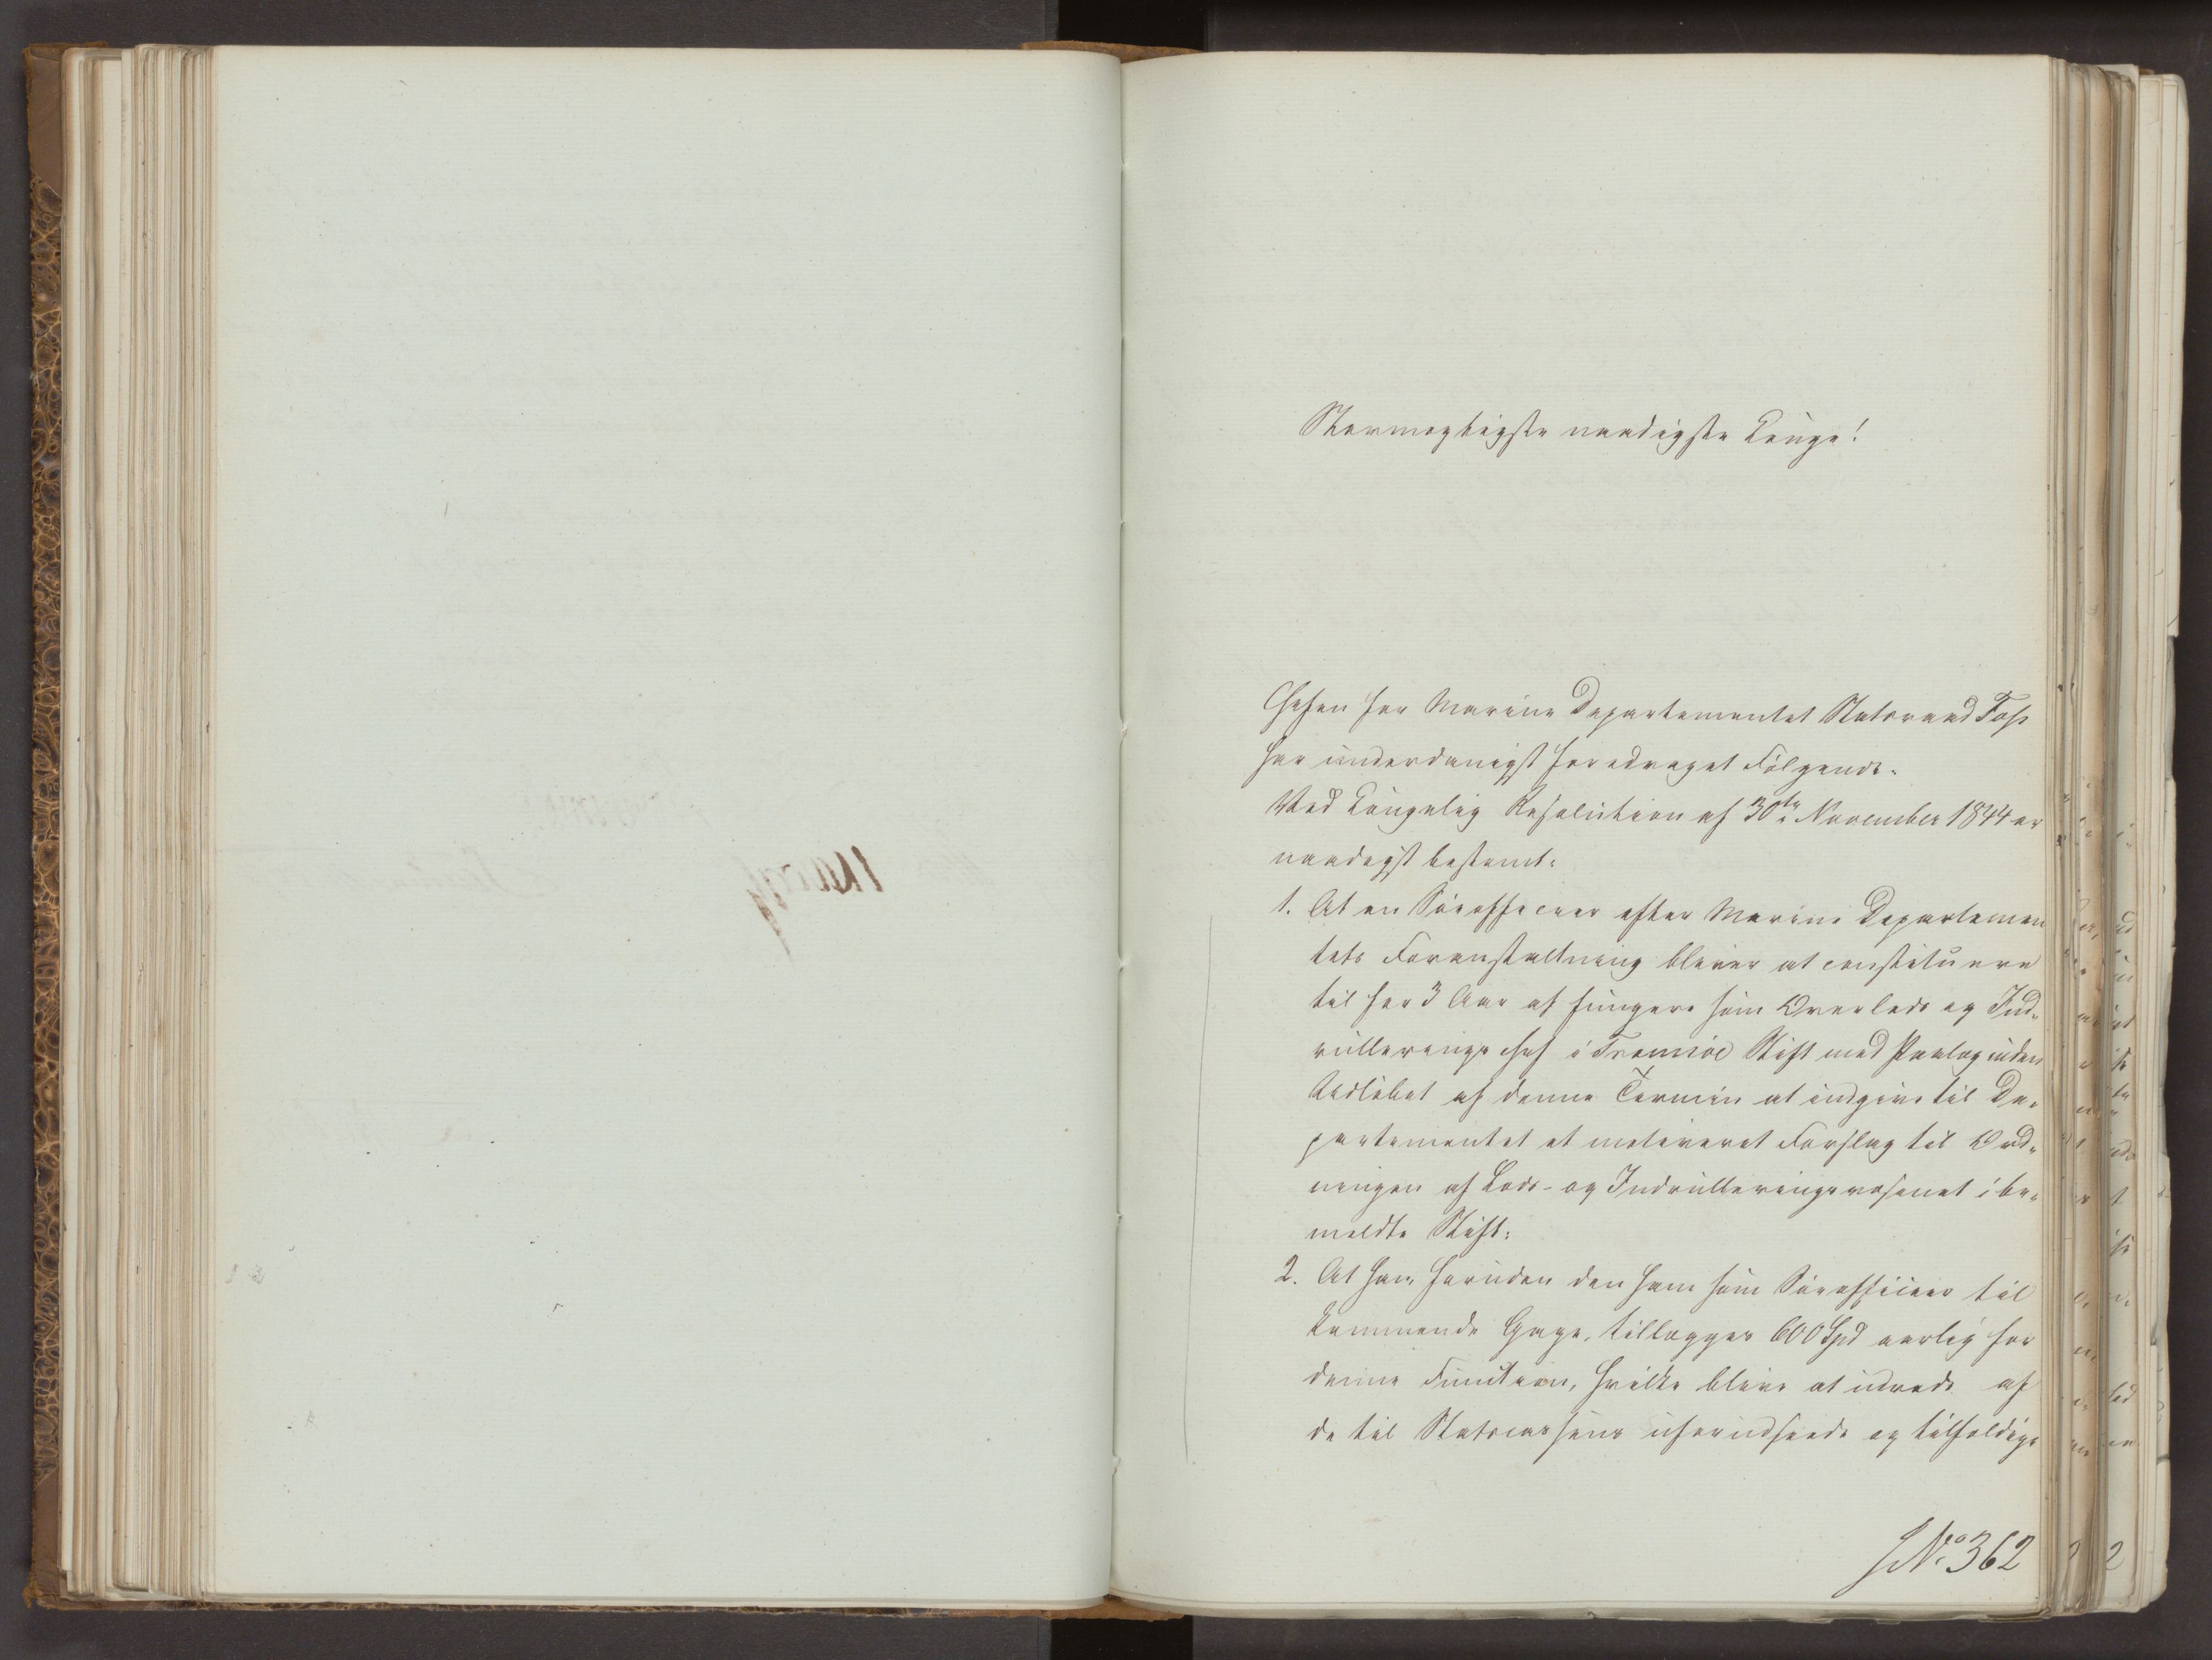 Stormægtigste naadigste Konge!
Chefen for Marine Departementet Statsraad Foss
har underdanigst foredraget Følgende.
Ved Kongelig Resolution af 30te November 1844 er
naadigst bestemt:
1. At en Søeofficeer efter Marine Departemen
tets Foranstaltning bliver at constituere
til for 3 Aar at fungere som Overlods og Ind-
rulleringschef i Tromsöe Stift med Paalæg inden
Udløbet af denne Termin at indgive til De-
partementet et motiveret Forslag til Ord-
ningen af Lods- og Indrulleringsvæsenet i be-
meldte Stift:
2. At ham, foruden den ham som Søeofficeer til
kommende Gage, tillægges 600 Spd aarlig for
denne Function, hvilke blive at udrede af
de til Statscassens uforudseede og tilfældige
JNo 362